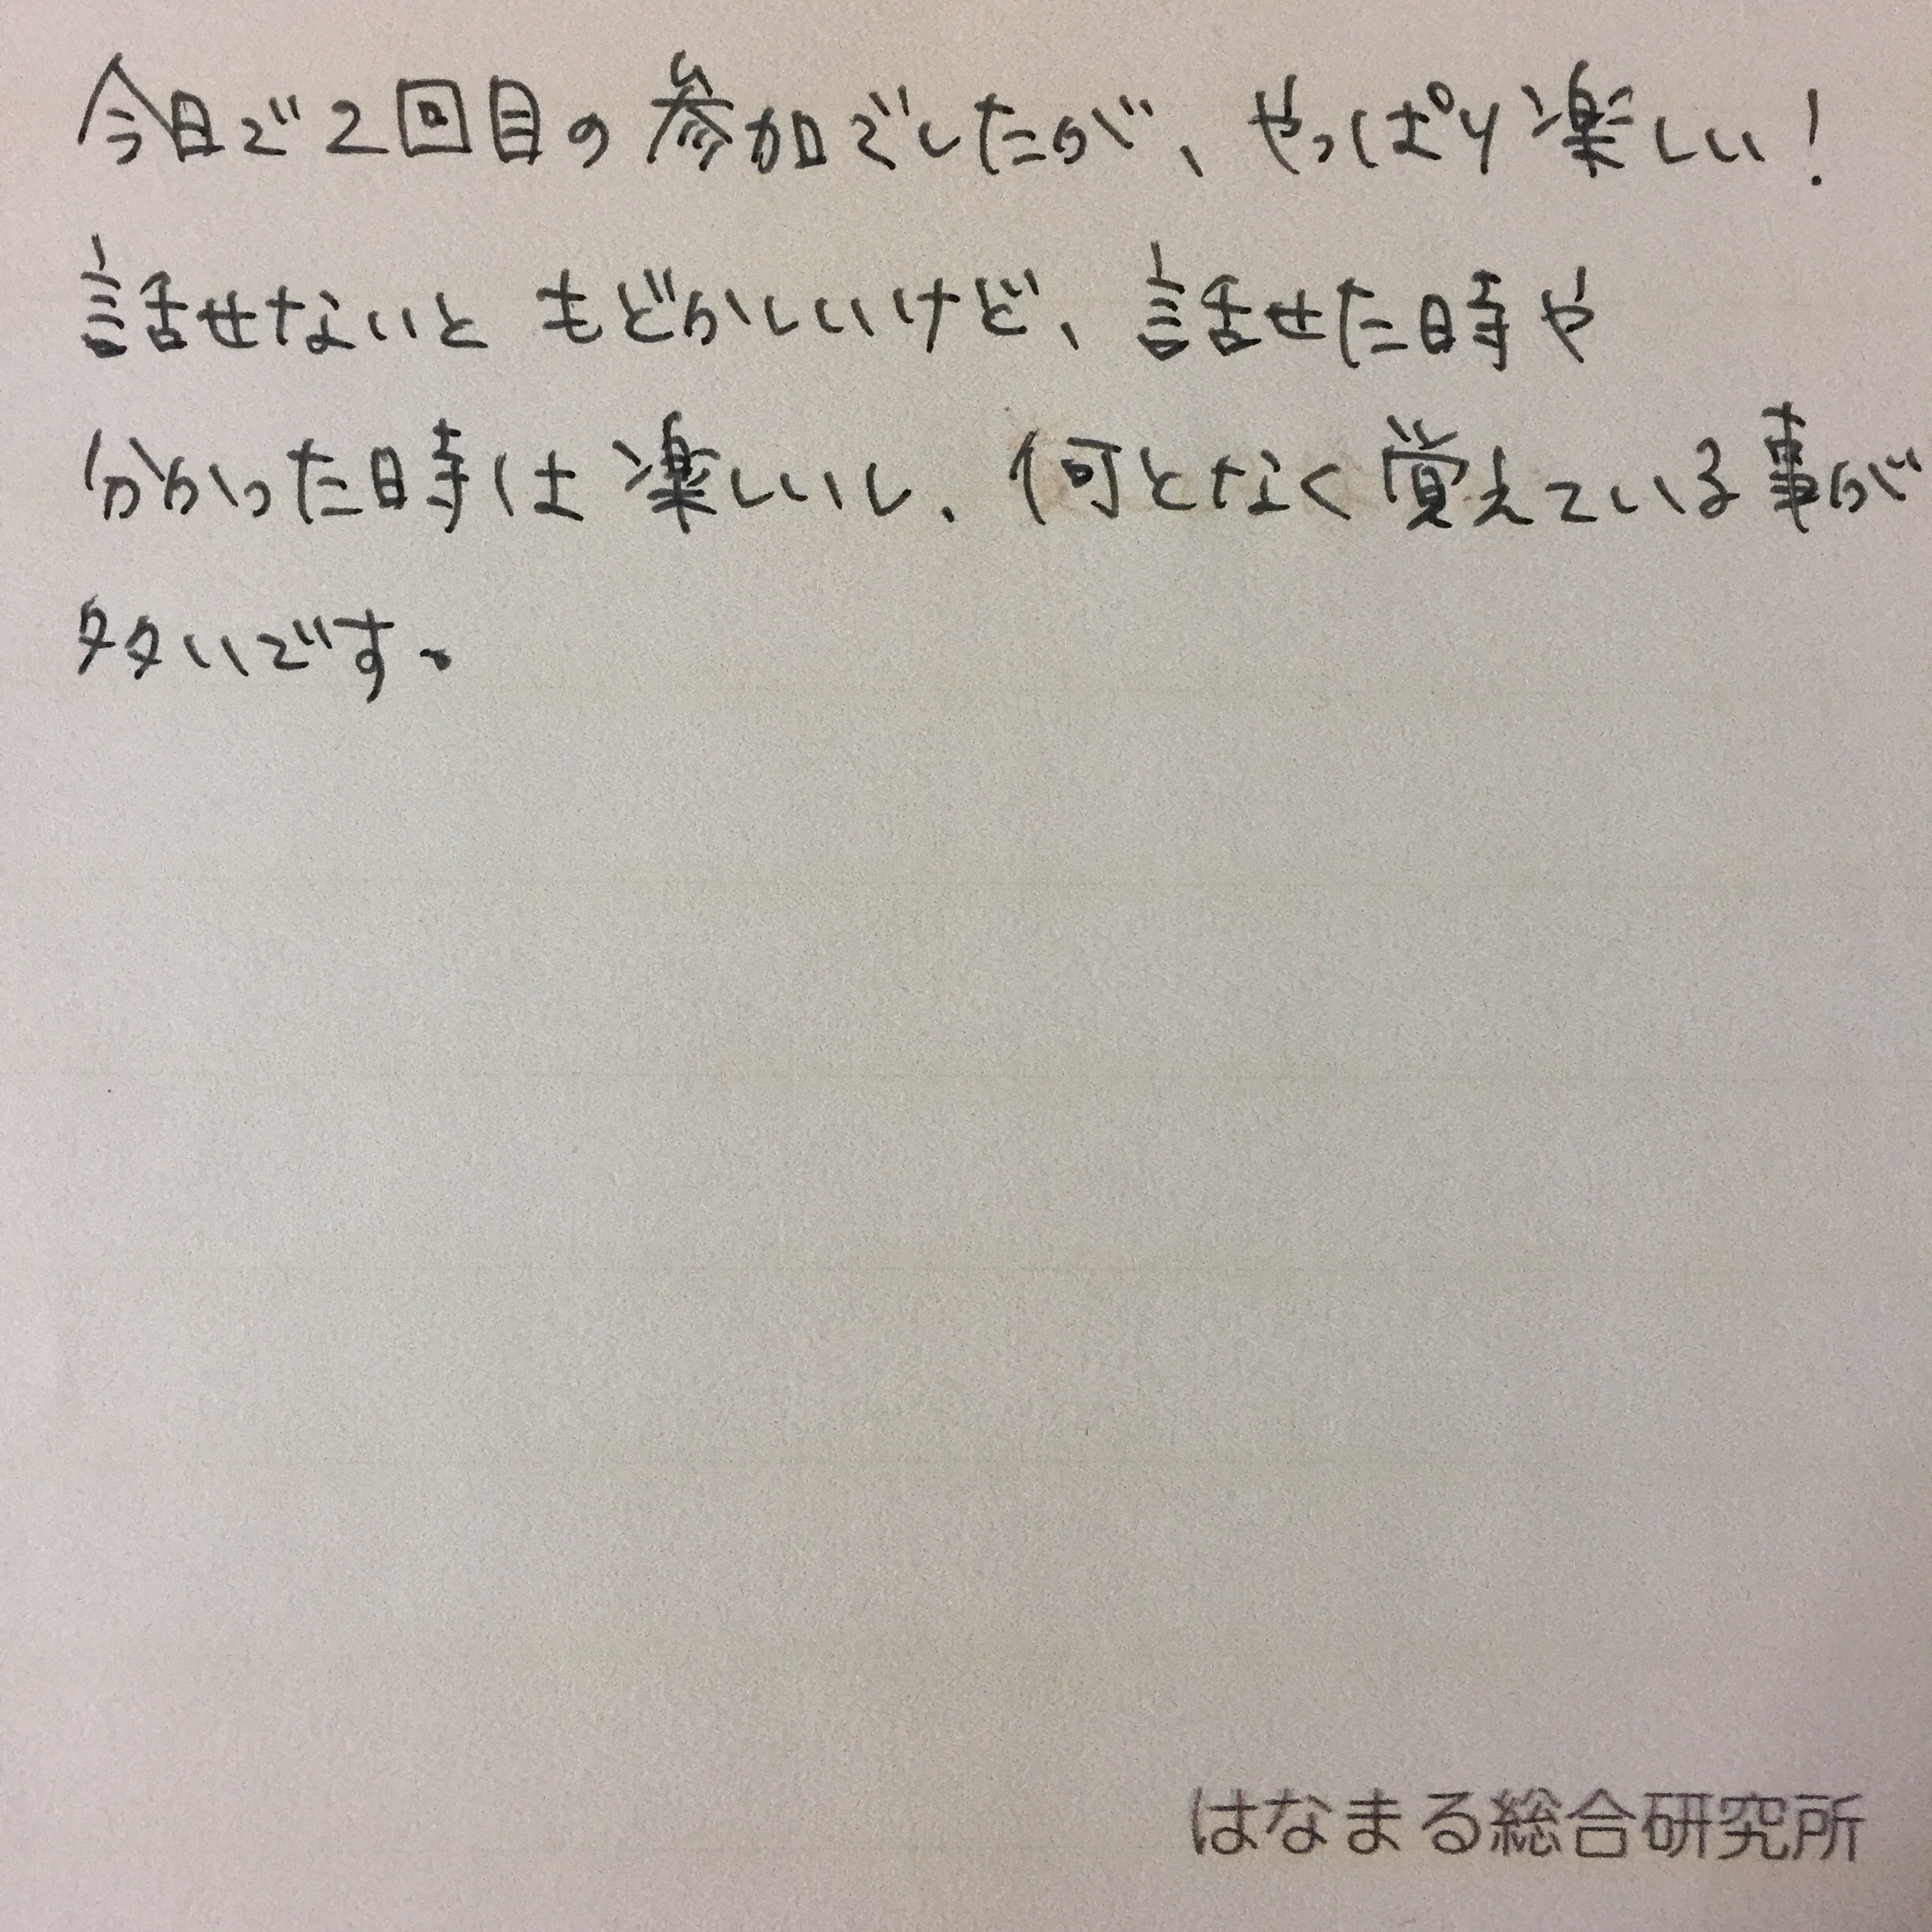 今日で2回目の参加でしたが、やっぱり楽しい!
話せないと もどかしいけど、話せた時や
分かった時は楽しいし、何となく覚えている事が
多いです。
はなまる総合研究所